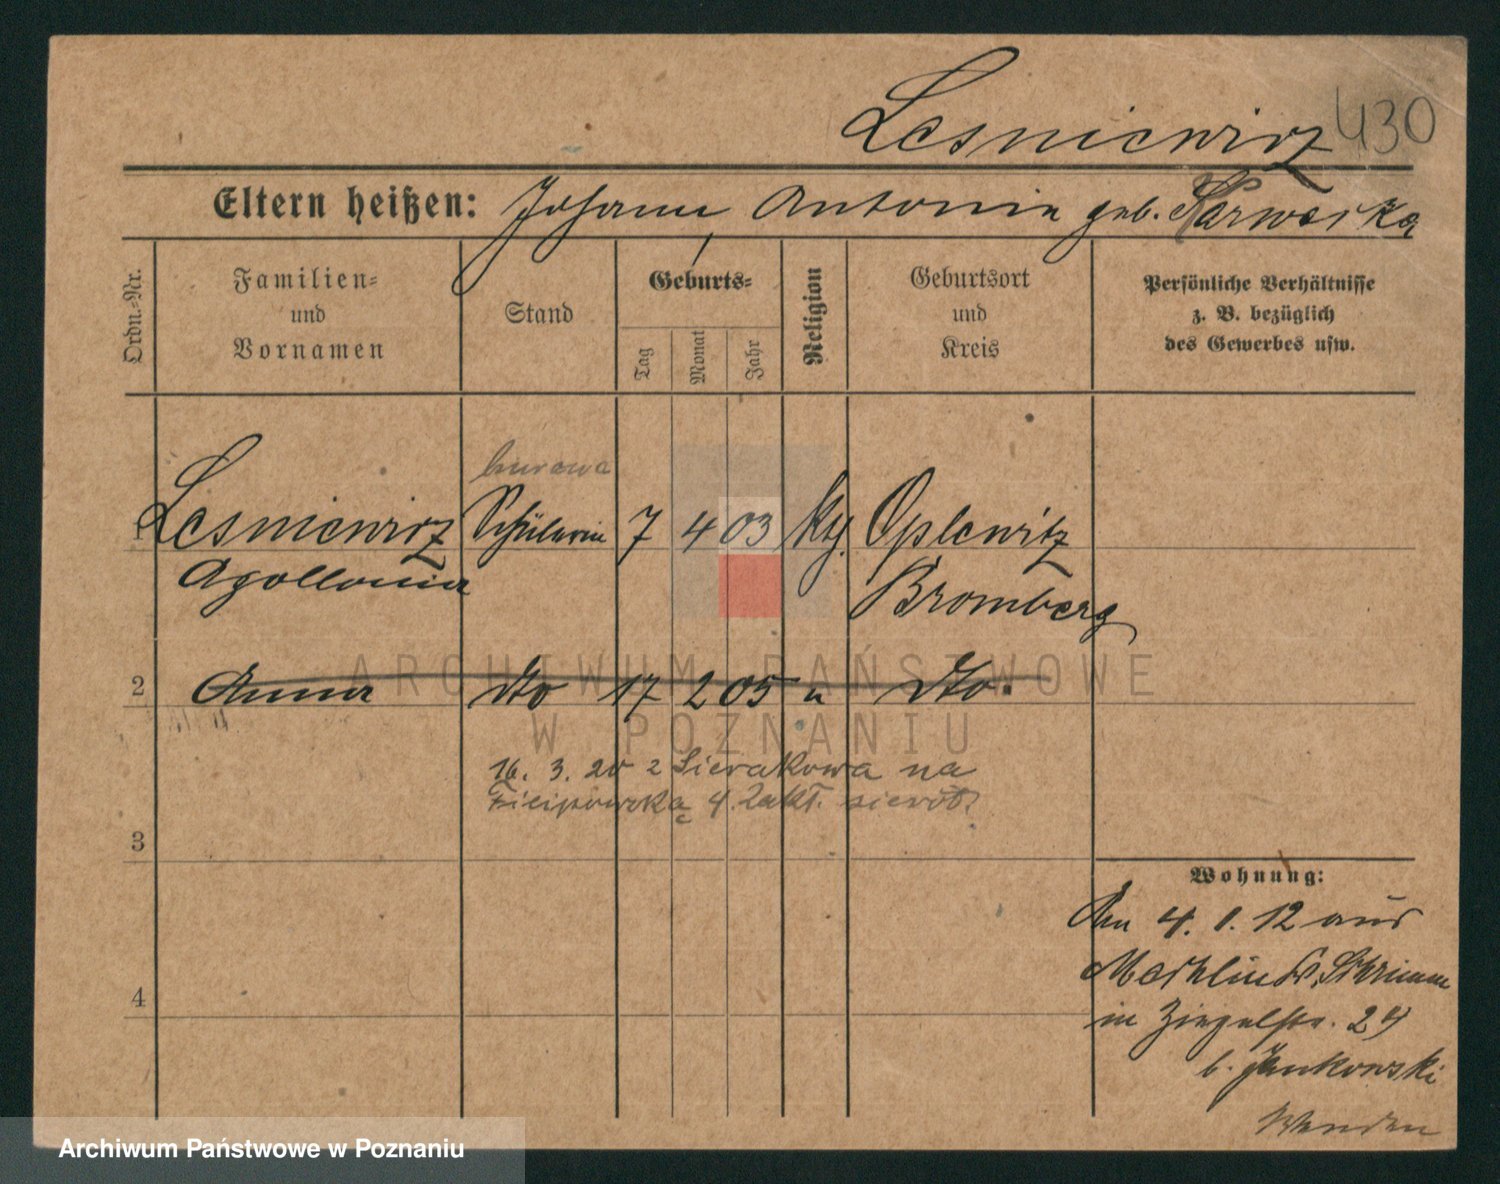 Lesniewicz 430
Eltern heißen: Johann Antonina geb.
Ordn.-Nr.
Familien-
und
Vornamen
Stand
Geburts-
Tag
Monat
Jahr
Religion
Geburtsort
und
Kreis
Persönliche Verhältnisse
z. B. bezüglich
des Gewerbes usw.
1 Lesniewicz Schülerin 7 4 03 kth. Oplewitz
Apollonia Bromberg
2 Anna dto 17 2 05 " dto.
16. 3. 20 z Sierakowa na
Filipowską 4. Zakł. sierot
3
4
Wohnung:
Am 4. 1. 12 aus
Mechlin Kr. Schrimm
in Ziegelstr. 24
b. Jankowski
Wenden
ARCHIWUM PAŃSTWOWE
W POZNANIU
Archiwum Państwowe w Poznaniu